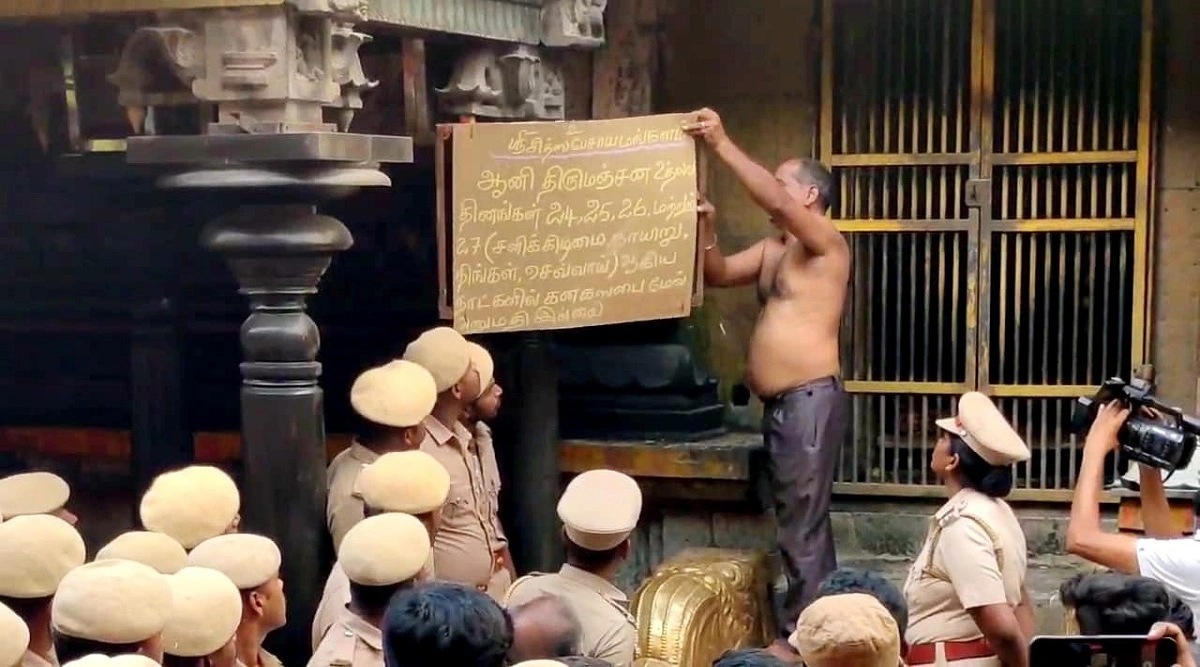 ஆனி திருமஞ்சன உத்ஸவ
தினங்கள் 24,25,26, மற்றும்
27 (சனிக்கிழமை, ஞாயிறு,
திங்கள், செவ்வாய்) ஆகிய
நாட்களில் கனகஸபை மேல்
அனுமதி இல்லை